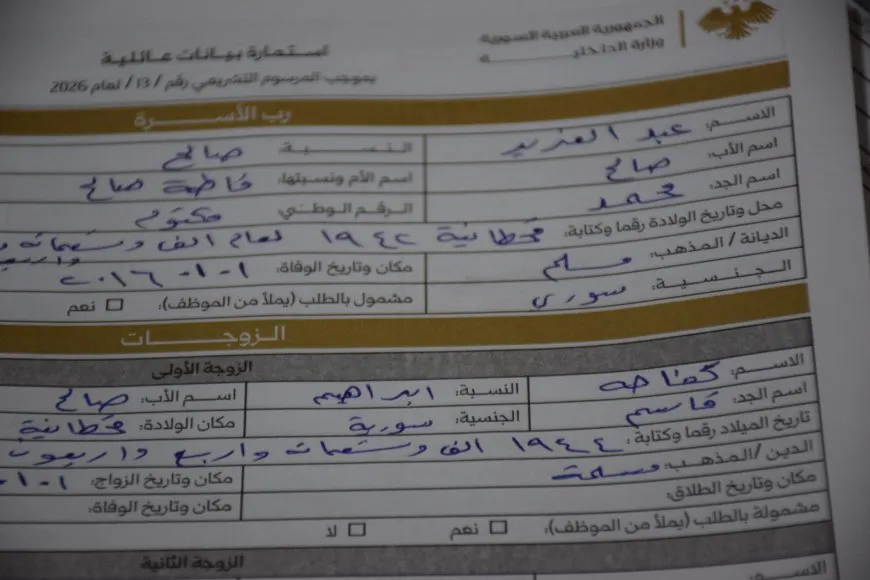 الجمهورية العربية السورية
وزارة الداخليـــــــة
استمارة بيانات عائلية
بموجب المرسوم التشريعي رقم /13/ لعام 2026
رب الأسرة
الاســم: عبد العزيز النـسـبـة: صالح
اسم الأب: صالح اسم الأم ونسبتها: فاطمة صالح
اسم الجد: محمد الـرقـم الـوطنـي: مكتوم
محل وتاريخ الولادة رقما وكتابة: قحطانية ١٩٤٢ لعام الف وتسعمائة
واربعو
الديانة / المذهب: مسلم مكان وتاريخ الوفاة: ١-١-٢٠١٦
الجـنـسـيـة: سوري مشمول بالطلب (يملأ من الموظف): نعم
الـزوجــــات
الزوجة الأولى
الاســم: النسبة: ابراهيم اسـم الأب: صالح
اسم الجد: قاسم الجنسية: سورية مكان الولادة: قحطانية
تاريخ الميلاد رقما وكتابة: ١٩٤٤ الف وتسعمائة واربع واربعون
الدين /المذهب: مسلمة
مكان وتاريخ الطلاق: مكان وتاريخ الزواج: ١-١-
مكان وتاريخ الوفاة:
مشمولة بالطلب (يملأ من الموظف): نعم لا
الزوجة الثانية
الاســم: